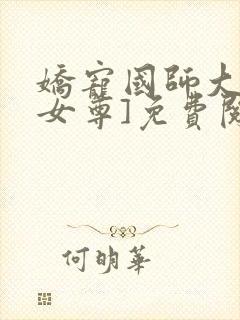 嬌寵國師大
女尊]免費閱
何明華